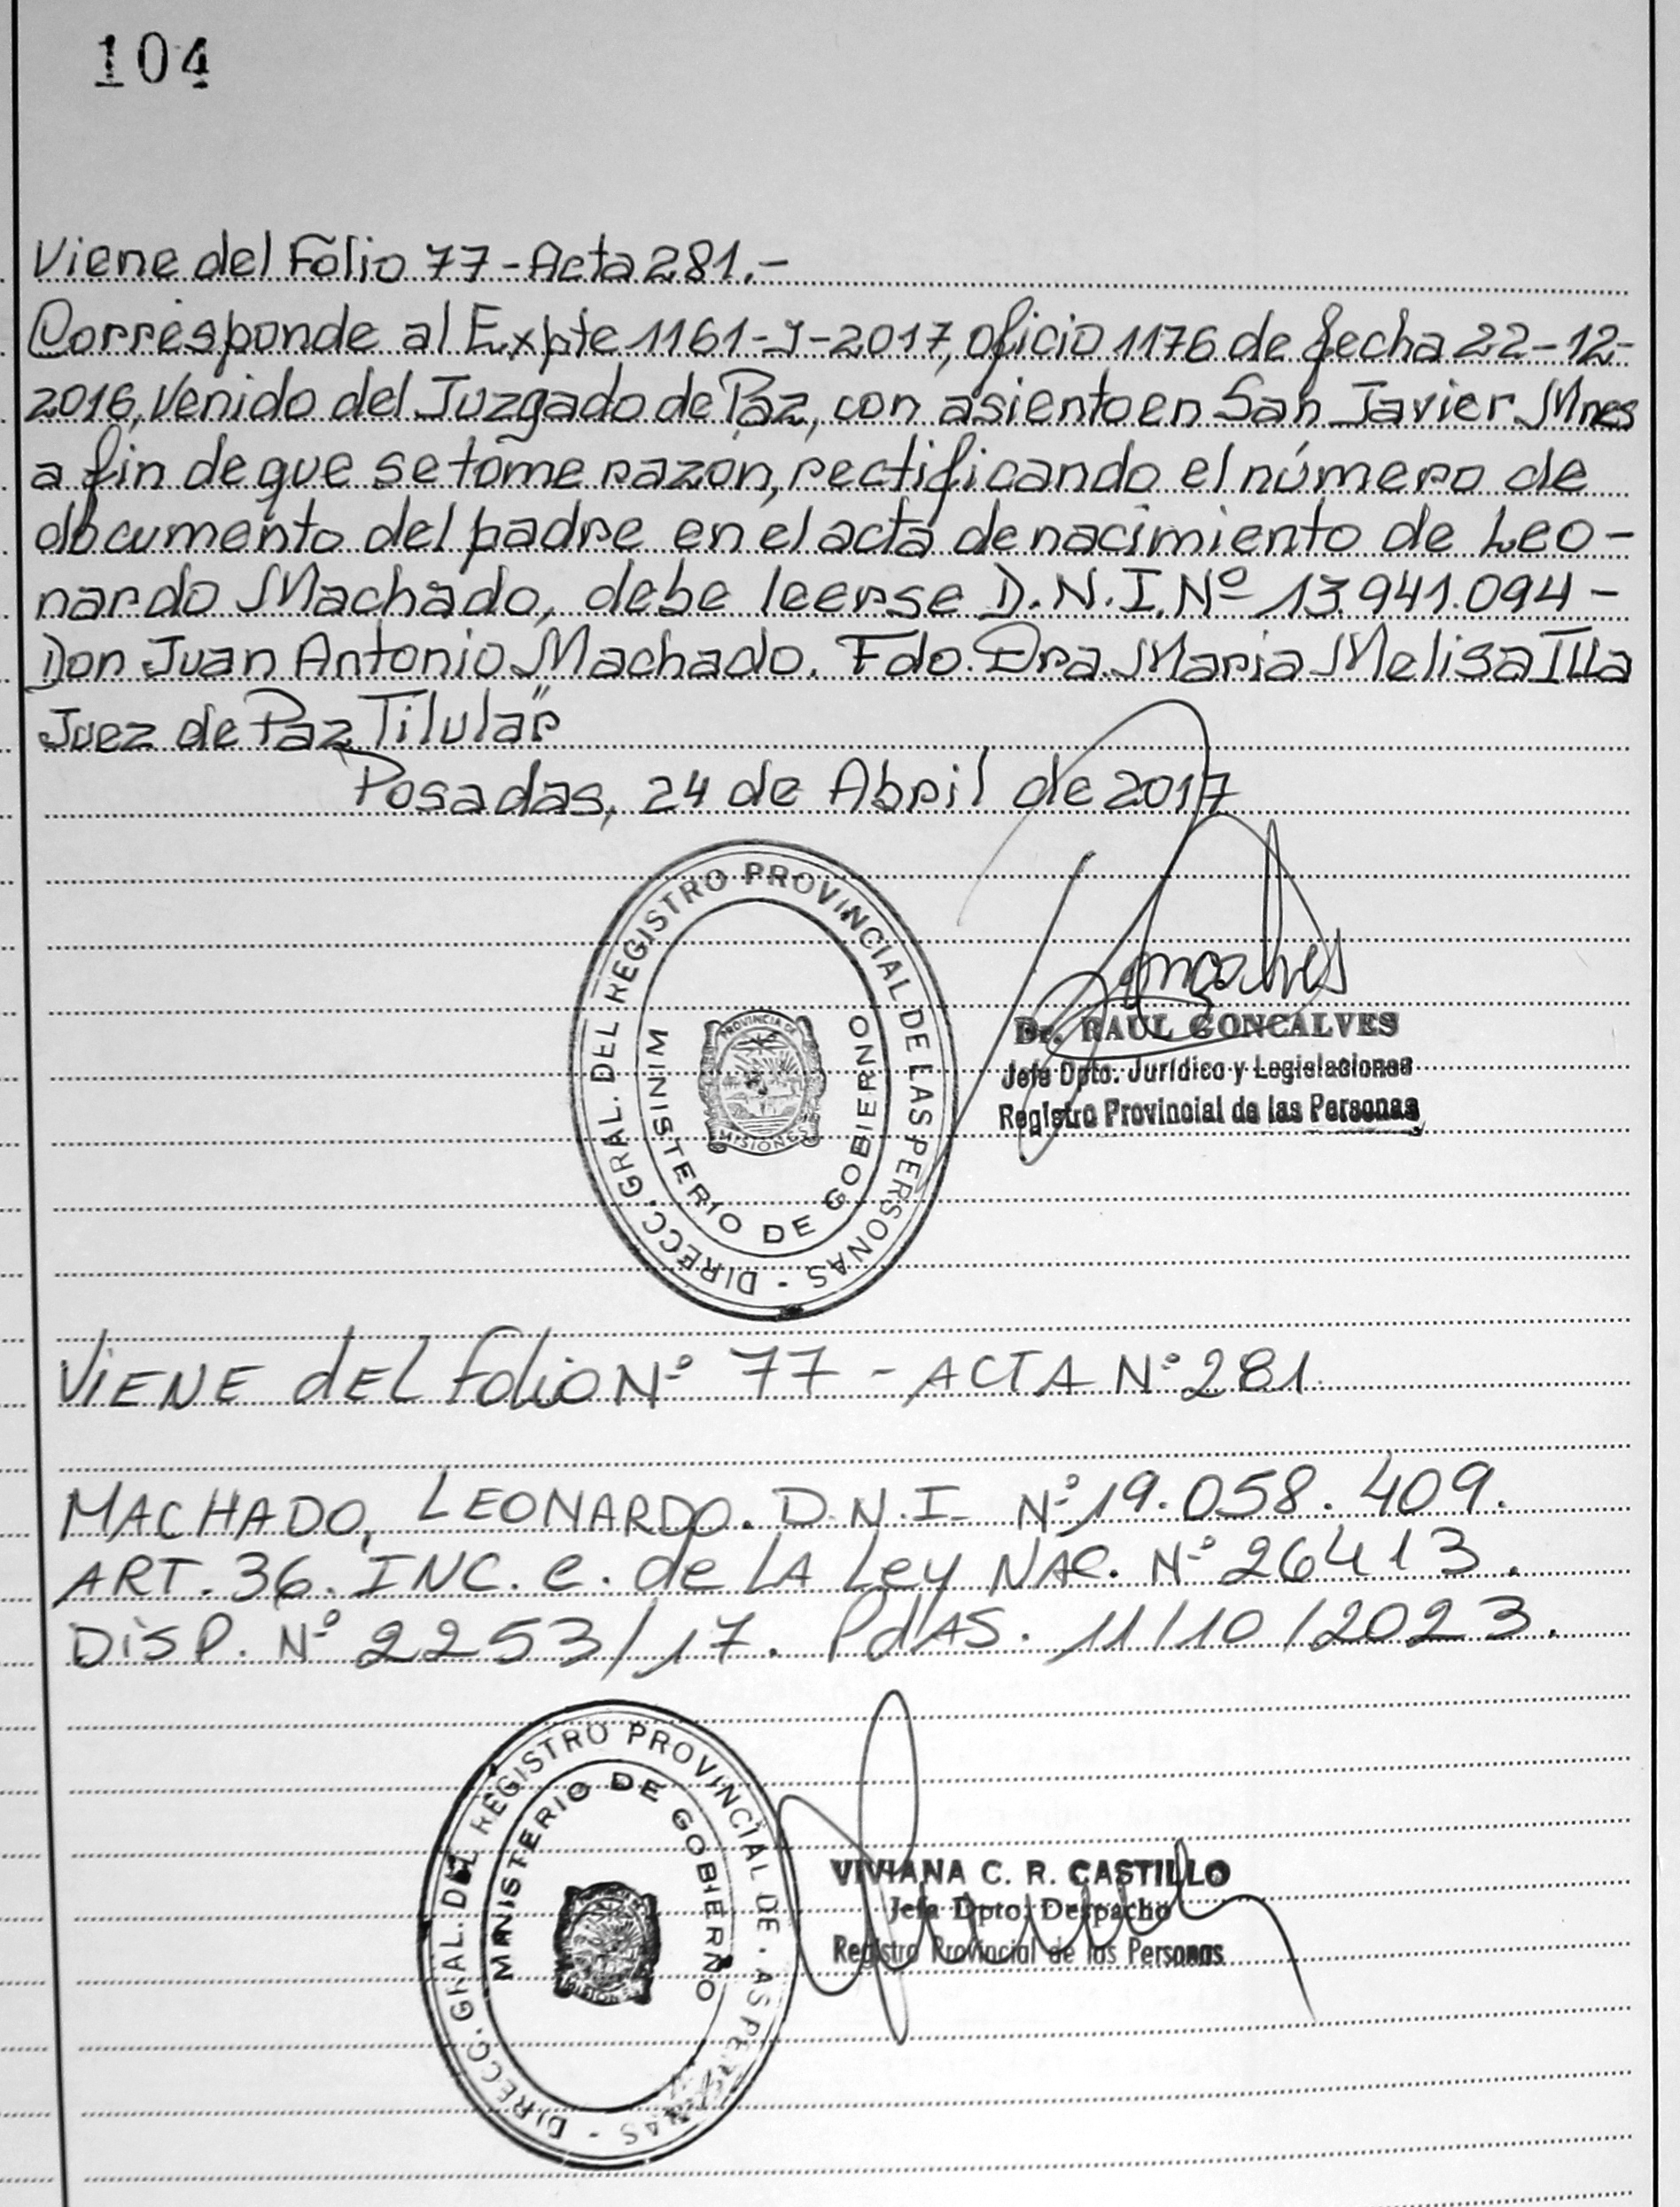 104
Viene del Folio 77 - Acta 281.-
Corresponde al Expte 1161-J-2017, oficio 1176 de fecha 22-12-
2016, Venido del Juzgado de Paz, con asiento en San Javier Mnes
a fin de que se tome razon, rectificando el número de
documento del padre en el acta de nacimiento de Leo-
nardo Machado, debe leerse D.N.I. Nº 13.941.094-
Don Juan Antonio Machado. Fdo. Dra. Maria Melisa Illa
Juez de Paz Titular"
Posadas, 24 de Abril de 2017
DIRECC. GRAL. DEL REGISTRO PROVINCIAL DE LAS PERSONAS -
MINISTERIO DE GOBIERNO
PROVINCIA DE
MISIONES
Gonçalves
Dr. RAUL GONCALVES
Jefe Dpto. Jurídico y Legislaciones
Registro Provincial de las Personas
VIENE del folio Nº 77 - ACTA Nº 281.
MACHADO, LEONARDO. D.N.I. Nº 19.058.409.
ART. 36. INC. e. de LA Ley NAC. Nº 26413.
DISP. Nº 2253/17. PdAS. 11/10/2023.
DIRECC. GRAL. DEL REGISTRO PROVINCIAL DE LAS PERSONAS -
MINISTERIO DE GOBIERNO
MISIONES
VIVIANA C. R. CASTILLO
Jefa Dpto. Despacho
Registro Provincial de las Personas